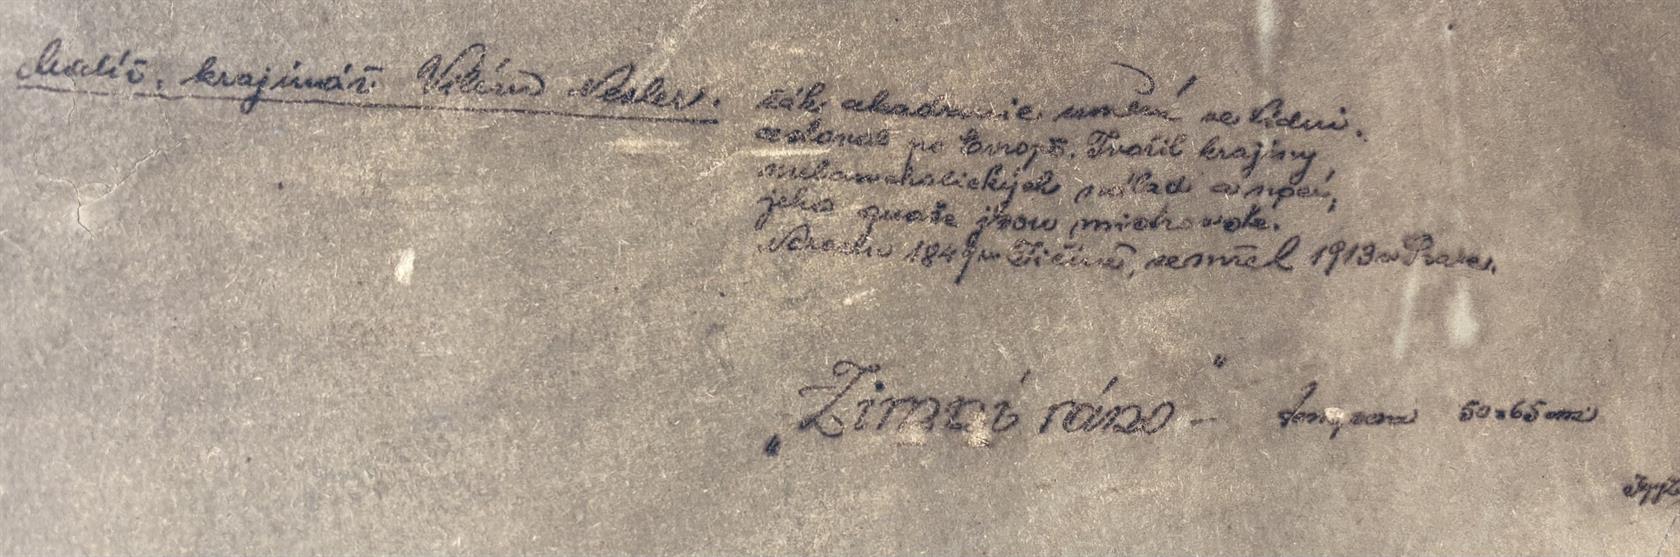 Malíř, krajinář Vilém Nesler.
žák akademie umění ve Vídni.
cestoval po Evropě. Tvořil krajiny
melancholických nálad a
jeho kvaše jsou mistrovské.
Narozen 1849 v Jičíně, zemřel 1913 v Praze.
„Zimní ráno" - tempera 50x65 cm